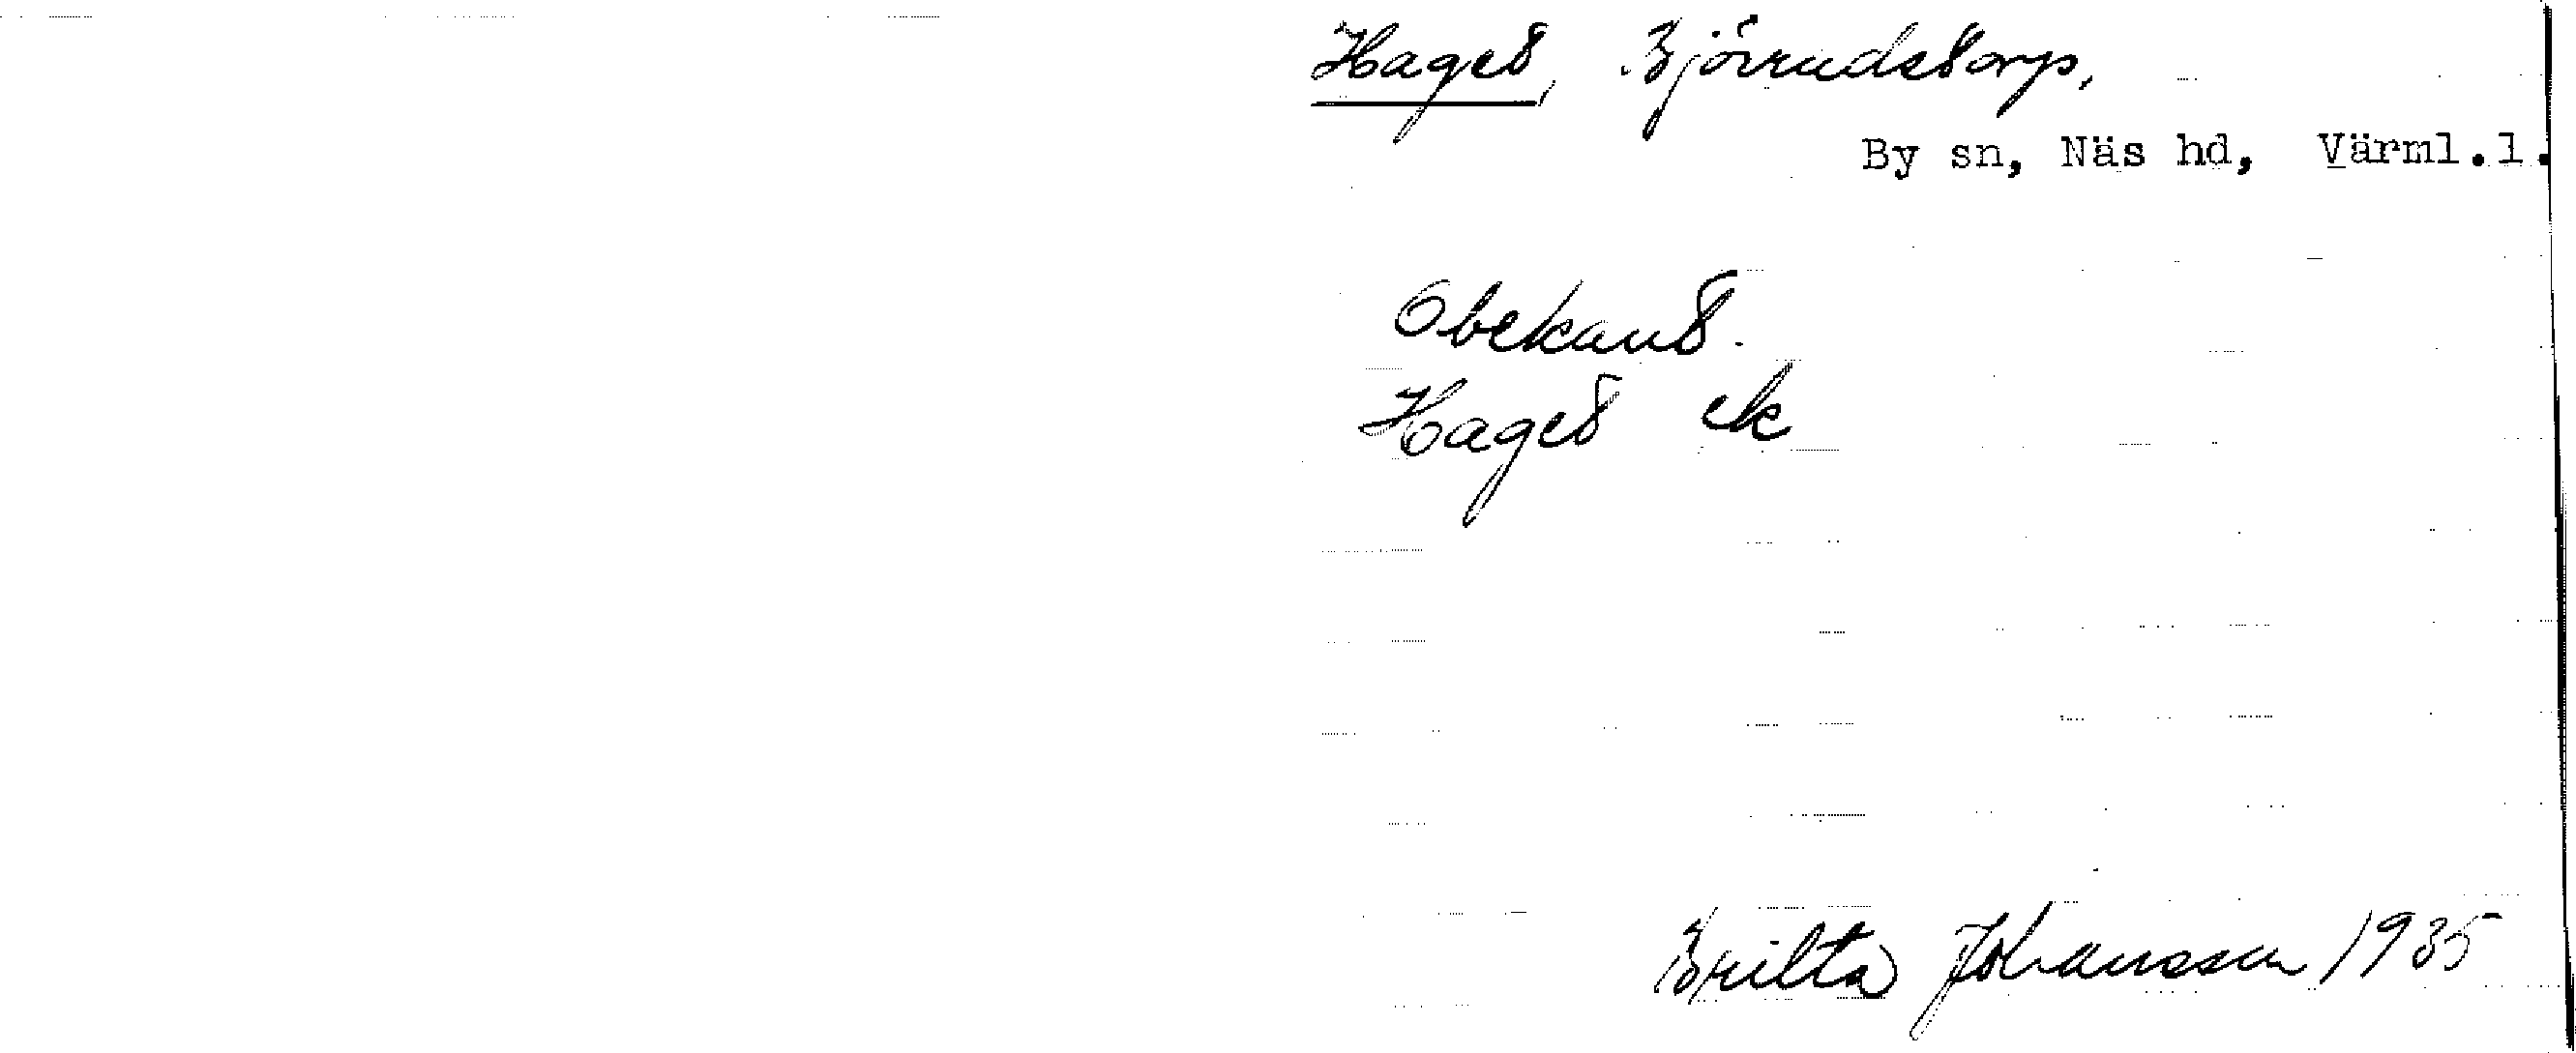 Haget, Björrudstorp,
By sn, Näs hd, Värml.l.
Obekant.
Haget ek
Britta Johansson 1935